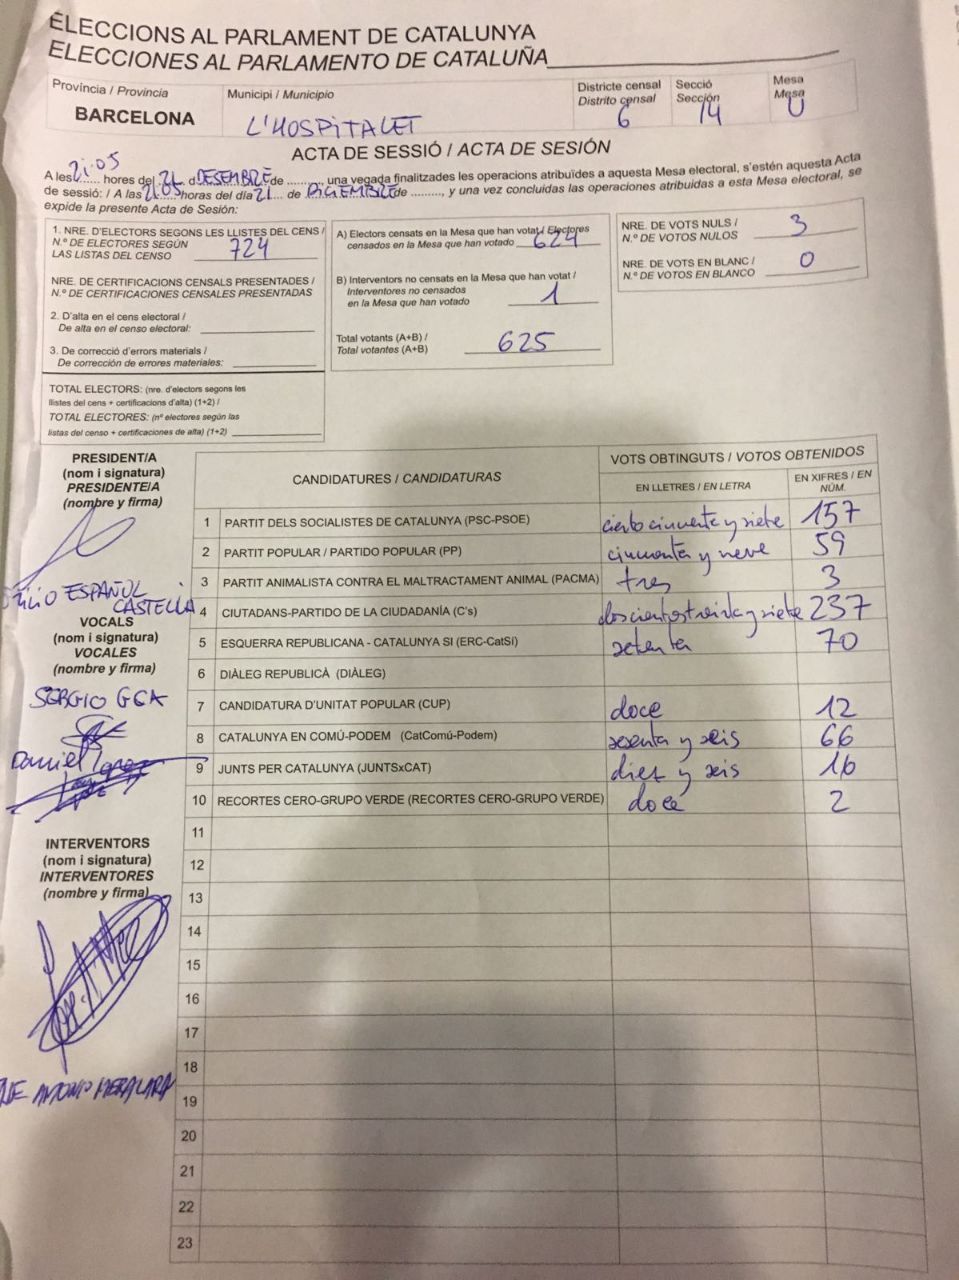 ELECCIONS AL PARLAMENT DE CATALUNYA
ELECCIONES AL PARLAMENTO DE CATALUÑA
Província / Provincia
BARCELONA
Municipi / Municipio
L'HOSPITALET
Districte censal
Distrito censal
6
Secció
Sección
14
Mesa
Mesa
U
ACTA DE SESSIÓ / ACTA DE SESIÓN
A les 21:05 hores del 21 d DESEMBRE de ........., una vegada finalitzades les operacions atribuïdes a aquesta Mesa electoral, s'estén aquesta Acta
de sessió: / A las 21:05 horas del día 21 ... de DICIEMBRE de ........., y una vez concluidas las operaciones atribuidas a esta Mesa electoral, se
expide la presente Acta de Sesión:
1. NRE. D'ELECTORS SEGONS LES LLISTES DEL CENS /
N.º DE ELECTORES SEGÚN
LAS LISTAS DEL CENSO 724
NRE. DE CERTIFICACIONS CENSALS PRESENTADES /
N.º DE CERTIFICACIONES CENSALES PRESENTADAS
2. D'alta en el cens electoral /
De alta en el censo electoral:
3. De correcció d'errors materials /
De corrección de errores materiales:
TOTAL ELECTORS: (nre. d'electors segons les
llistes del cens + certificacions d'alta) (1+2) /
TOTAL ELECTORES: (nº electores según las
listas del censo + certificaciones de alta) (1+2)
A) Electors censats en la Mesa que han votat / Electores
censados en la Mesa que han votado 624
B) Interventors no censats en la Mesa que han votat /
Interventores no censados
en la Mesa que han votado 1
Total votants (A+B) /
Total votantes (A+B) 625
NRE. DE VOTS NULS /
N.º DE VOTOS NULOS 3
NRE. DE VOTS EN BLANC /
N.º DE VOTOS EN BLANCO 0
PRESIDENT/A
(nom i signatura)
PRESIDENTE/A
(nombre y firma)
ESPAÑOL
CASTELLA
VOCALS
(nom i signatura)
VOCALES
(nombre y firma)
SERGIO GCA
Daniel
INTERVENTORS
(nom i signatura)
INTERVENTORES
(nombre y firma)
ANTONIO
CANDIDATURES / CANDIDATURAS
VOTS OBTINGUTS / VOTOS OBTENIDOS
EN LLETRES / EN LETRA
EN XIFRES / EN NÚM.
1 PARTIT DELS SOCIALISTES DE CATALUNYA (PSC-PSOE) ciento cincuenta y siete 157
2 PARTIT POPULAR / PARTIDO POPULAR (PP) cincuenta y neve 59
3 PARTIT ANIMALISTA CONTRA EL MALTRACTAMENT ANIMAL (PACMA) tres 3
4 CIUTADANS-PARTIDO DE LA CIUDADANÍA (C's) doscientos treinta y siete 237
5 ESQUERRA REPUBLICANA - CATALUNYA SI (ERC-CatSí) setenta 70
6 DIÀLEG REPUBLICÀ (DIÀLEG)
7 CANDIDATURA D'UNITAT POPULAR (CUP) doce 12
8 CATALUNYA EN COMÚ-PODEM (CatComú-Podem) sesenta y seis 66
9 JUNTS PER CATALUNYA (JUNTSxCAT) diez y seis 16
10 RECORTES CERO-GRUPO VERDE (RECORTES CERO-GRUPO VERDE) doce 2
11
12
13
14
15
16
17
18
19
20
21
22
23